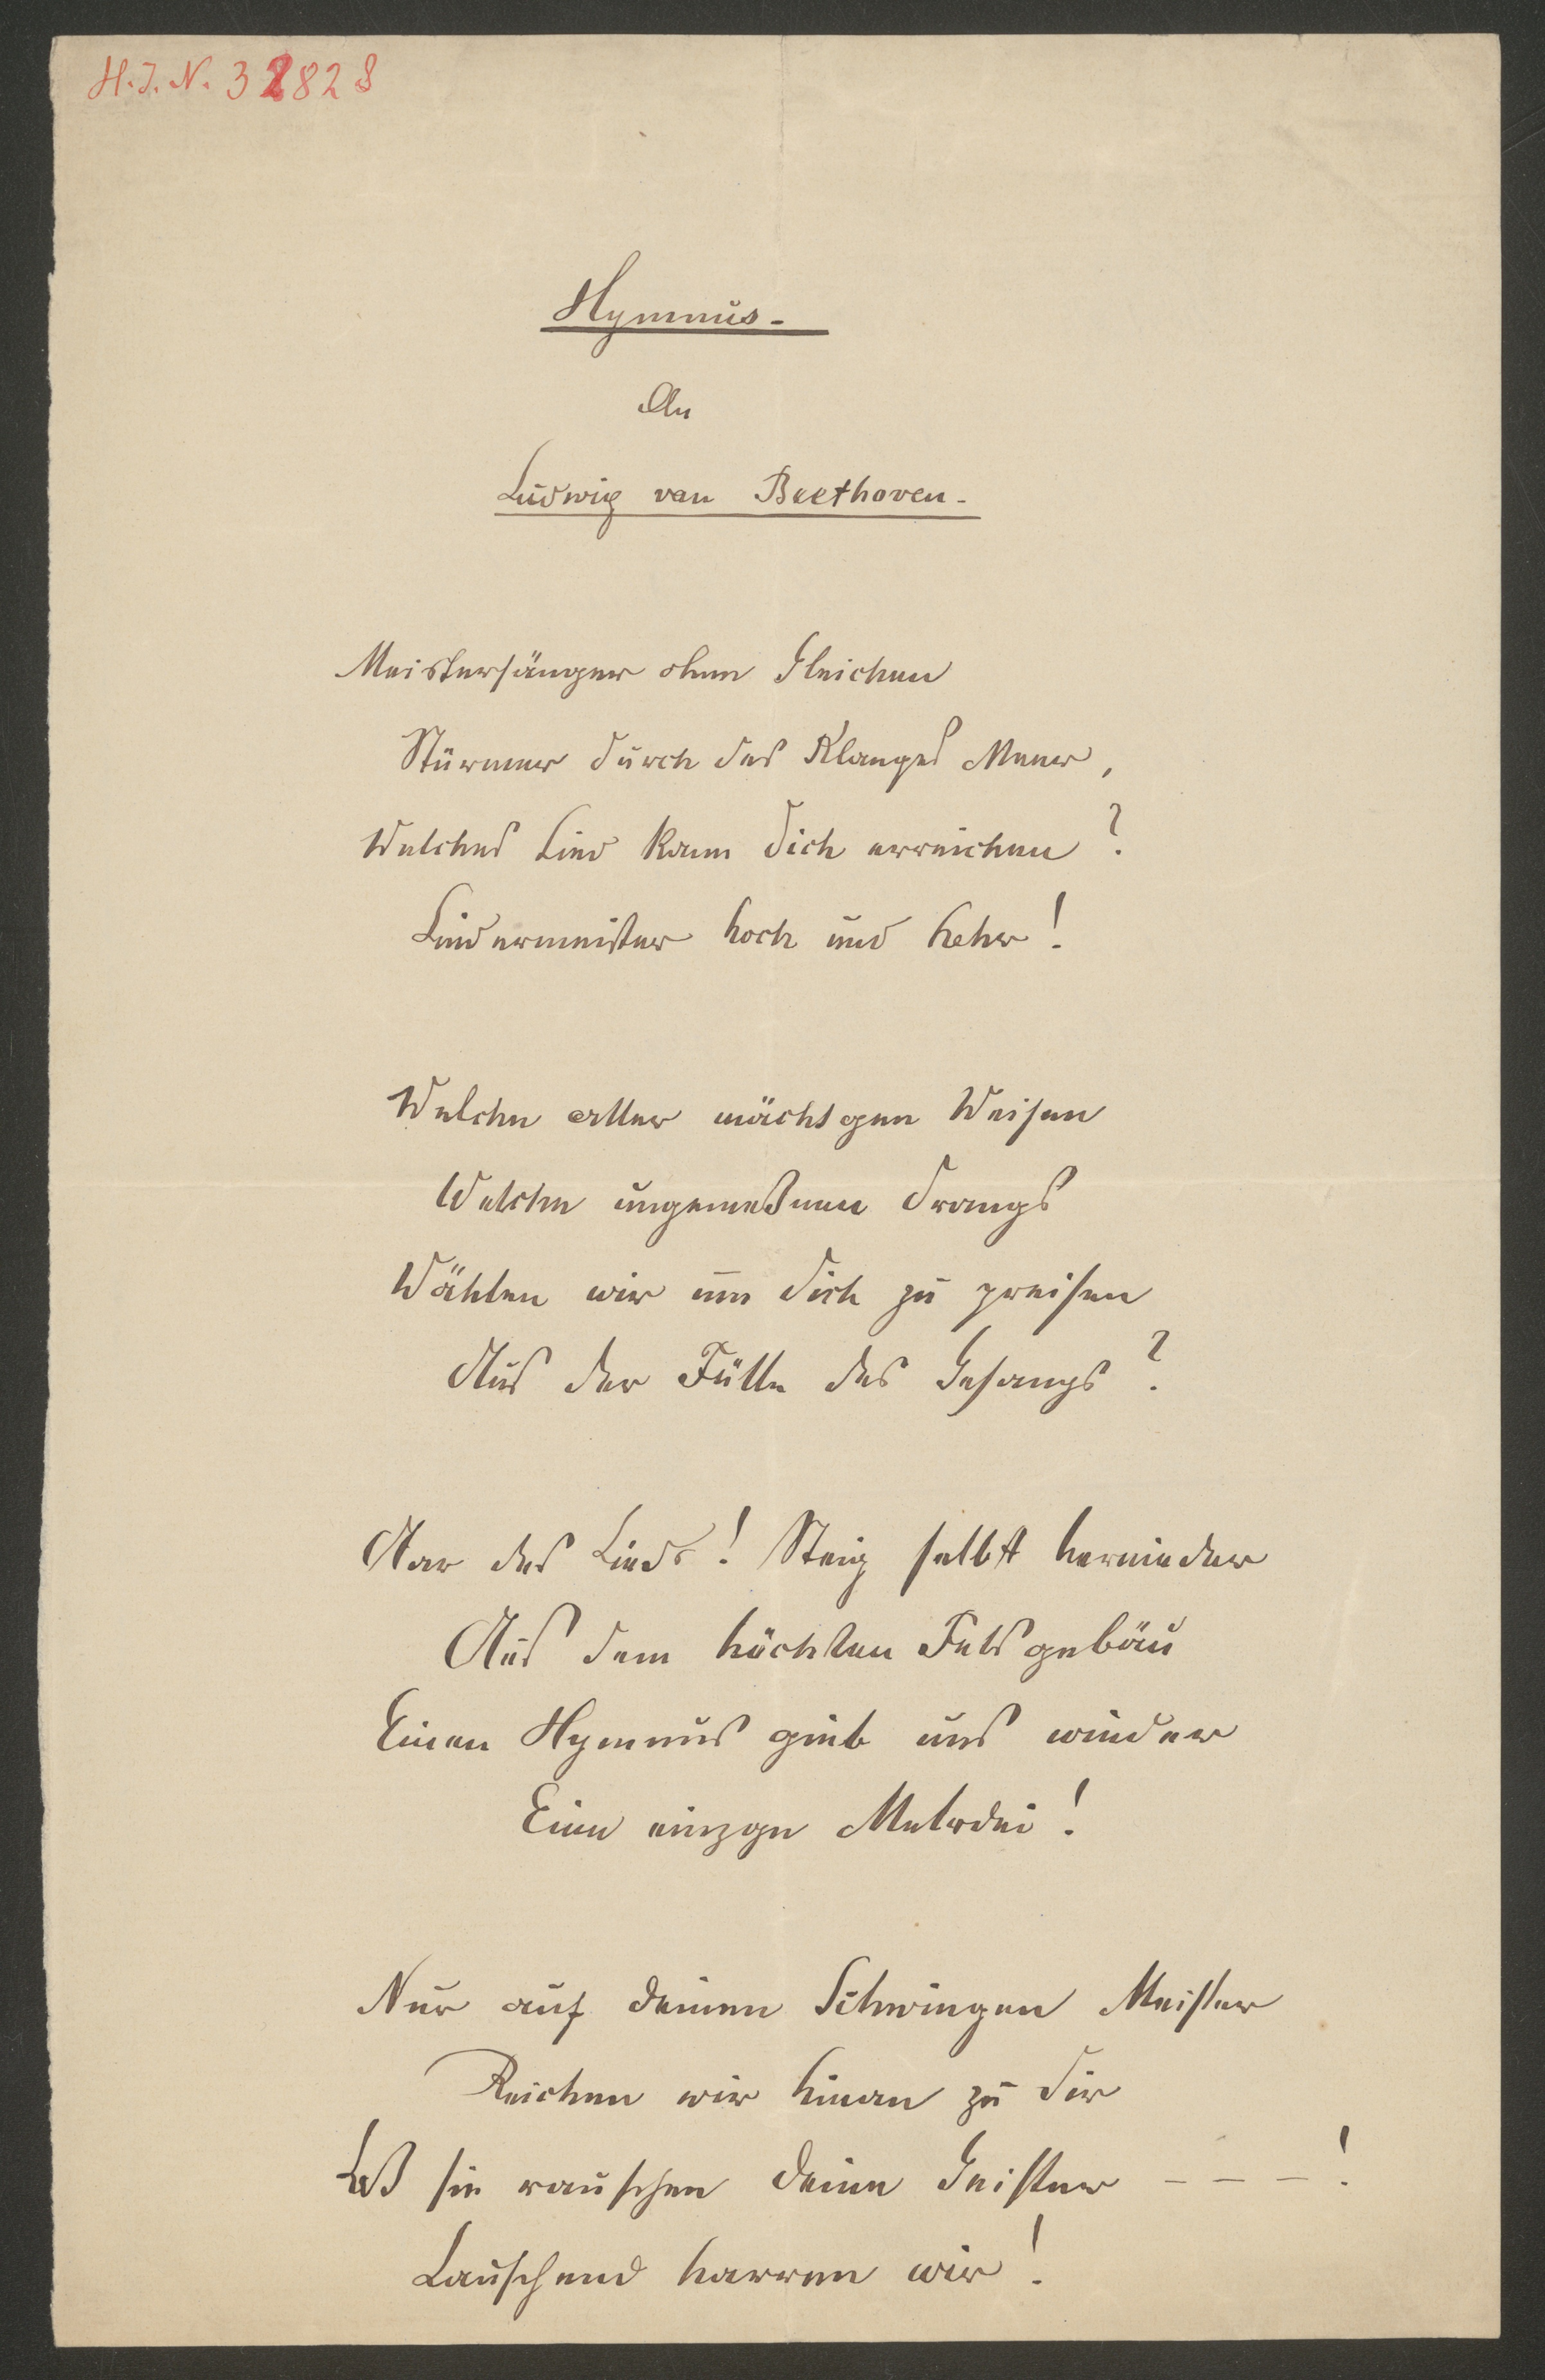 H.I.N. 32828
Hymnus-
An
Ludwig van Beethoven-
Meistersänger ohne Gleichen
Stürmer durch des Klanges Meer,
Welches Lied kann dich erreichen?
Liedermeister hoch und hehr!
Welche aller mächtgen Weisen
Welche ungemeßnen Drangs
Wählen wir um dich zu preisen
Aus der Fülle des Gesangs?
Aar des Lieds! Steig selbst hernieder
Aus dem höchsten Felsgebäu
Einen Hymnus gieb uns wieder
Eine einzge Melodei!
Nur auf deinen Schwingen Meister
Reichen wir hinan zu dir
Laß sie rauschen deine Geister - - - !
Lauschend harren wir!